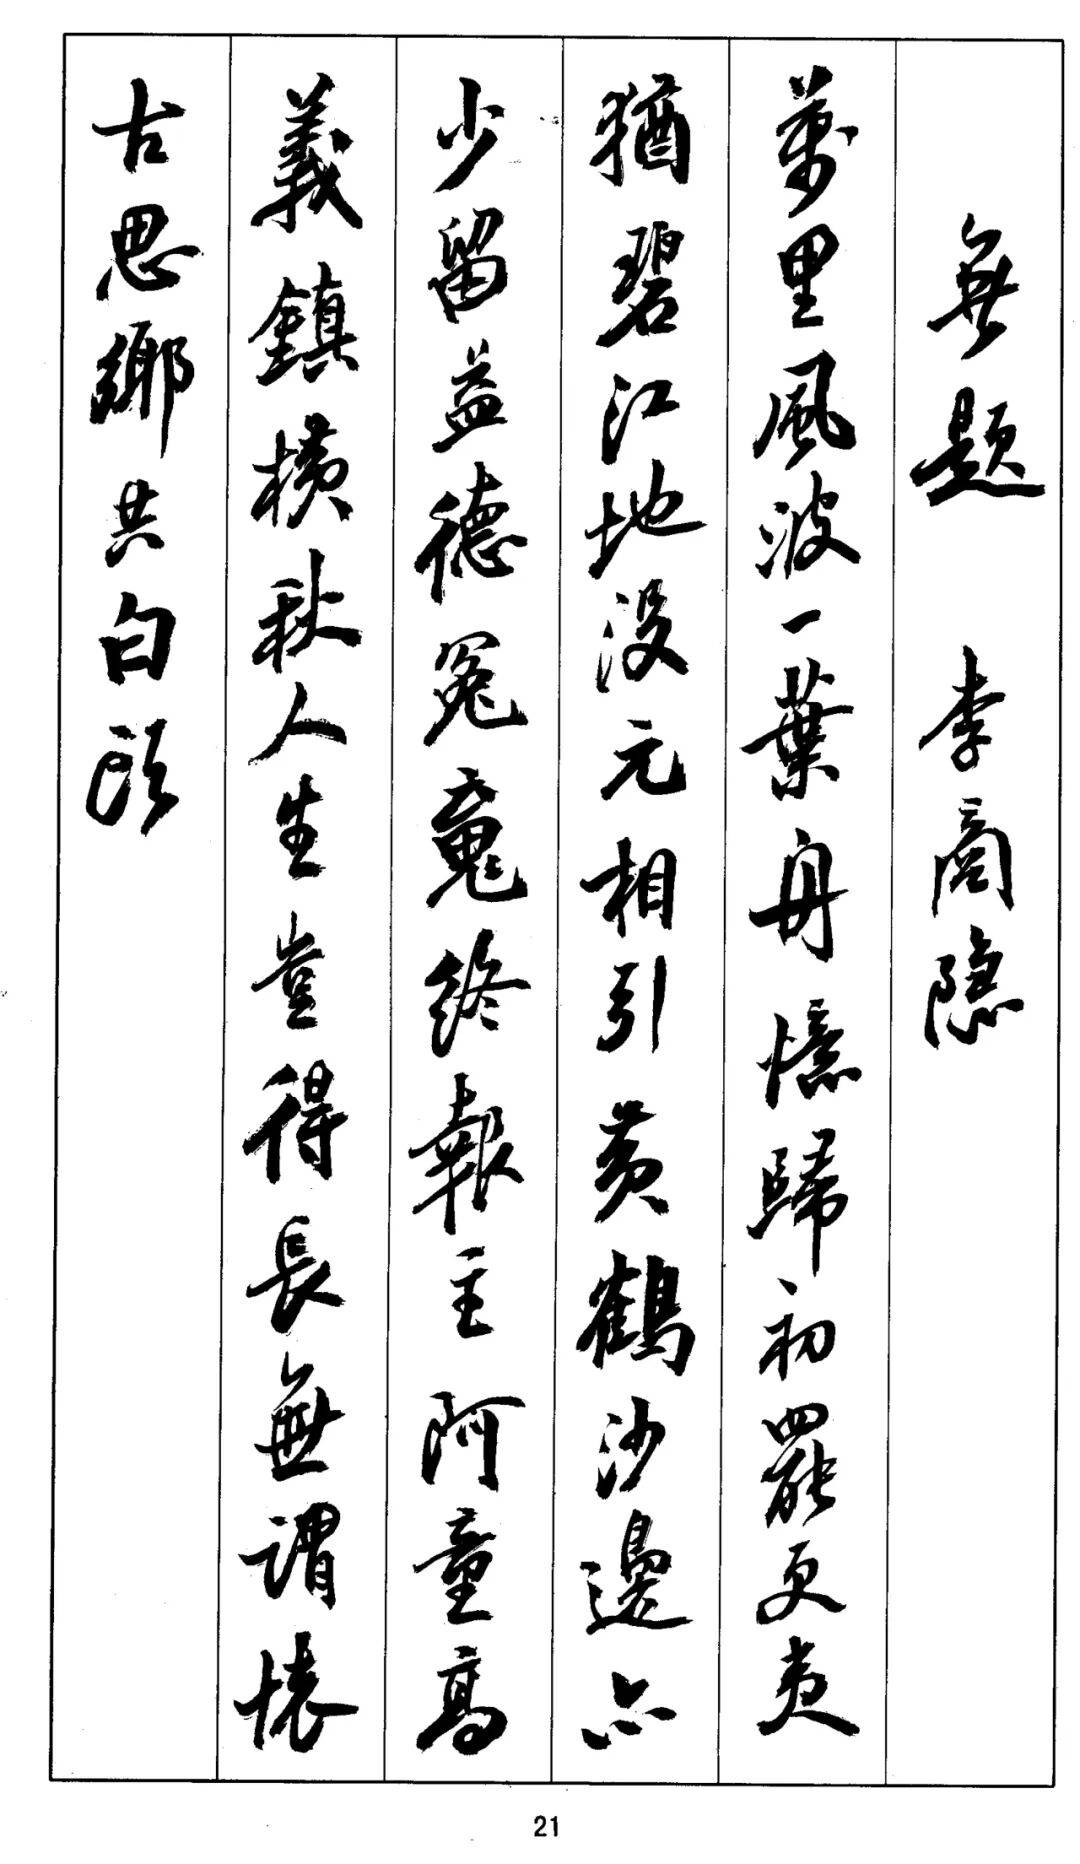 無題 李商隱
萬里風波一葉舟憶歸初罷更夷
猶碧江地沒元相引黃鶴沙邊亦
少留益德冤魂終報主阿童高
義鎮橫秋人生豈得長無謂懷
古思鄉共白頭
21